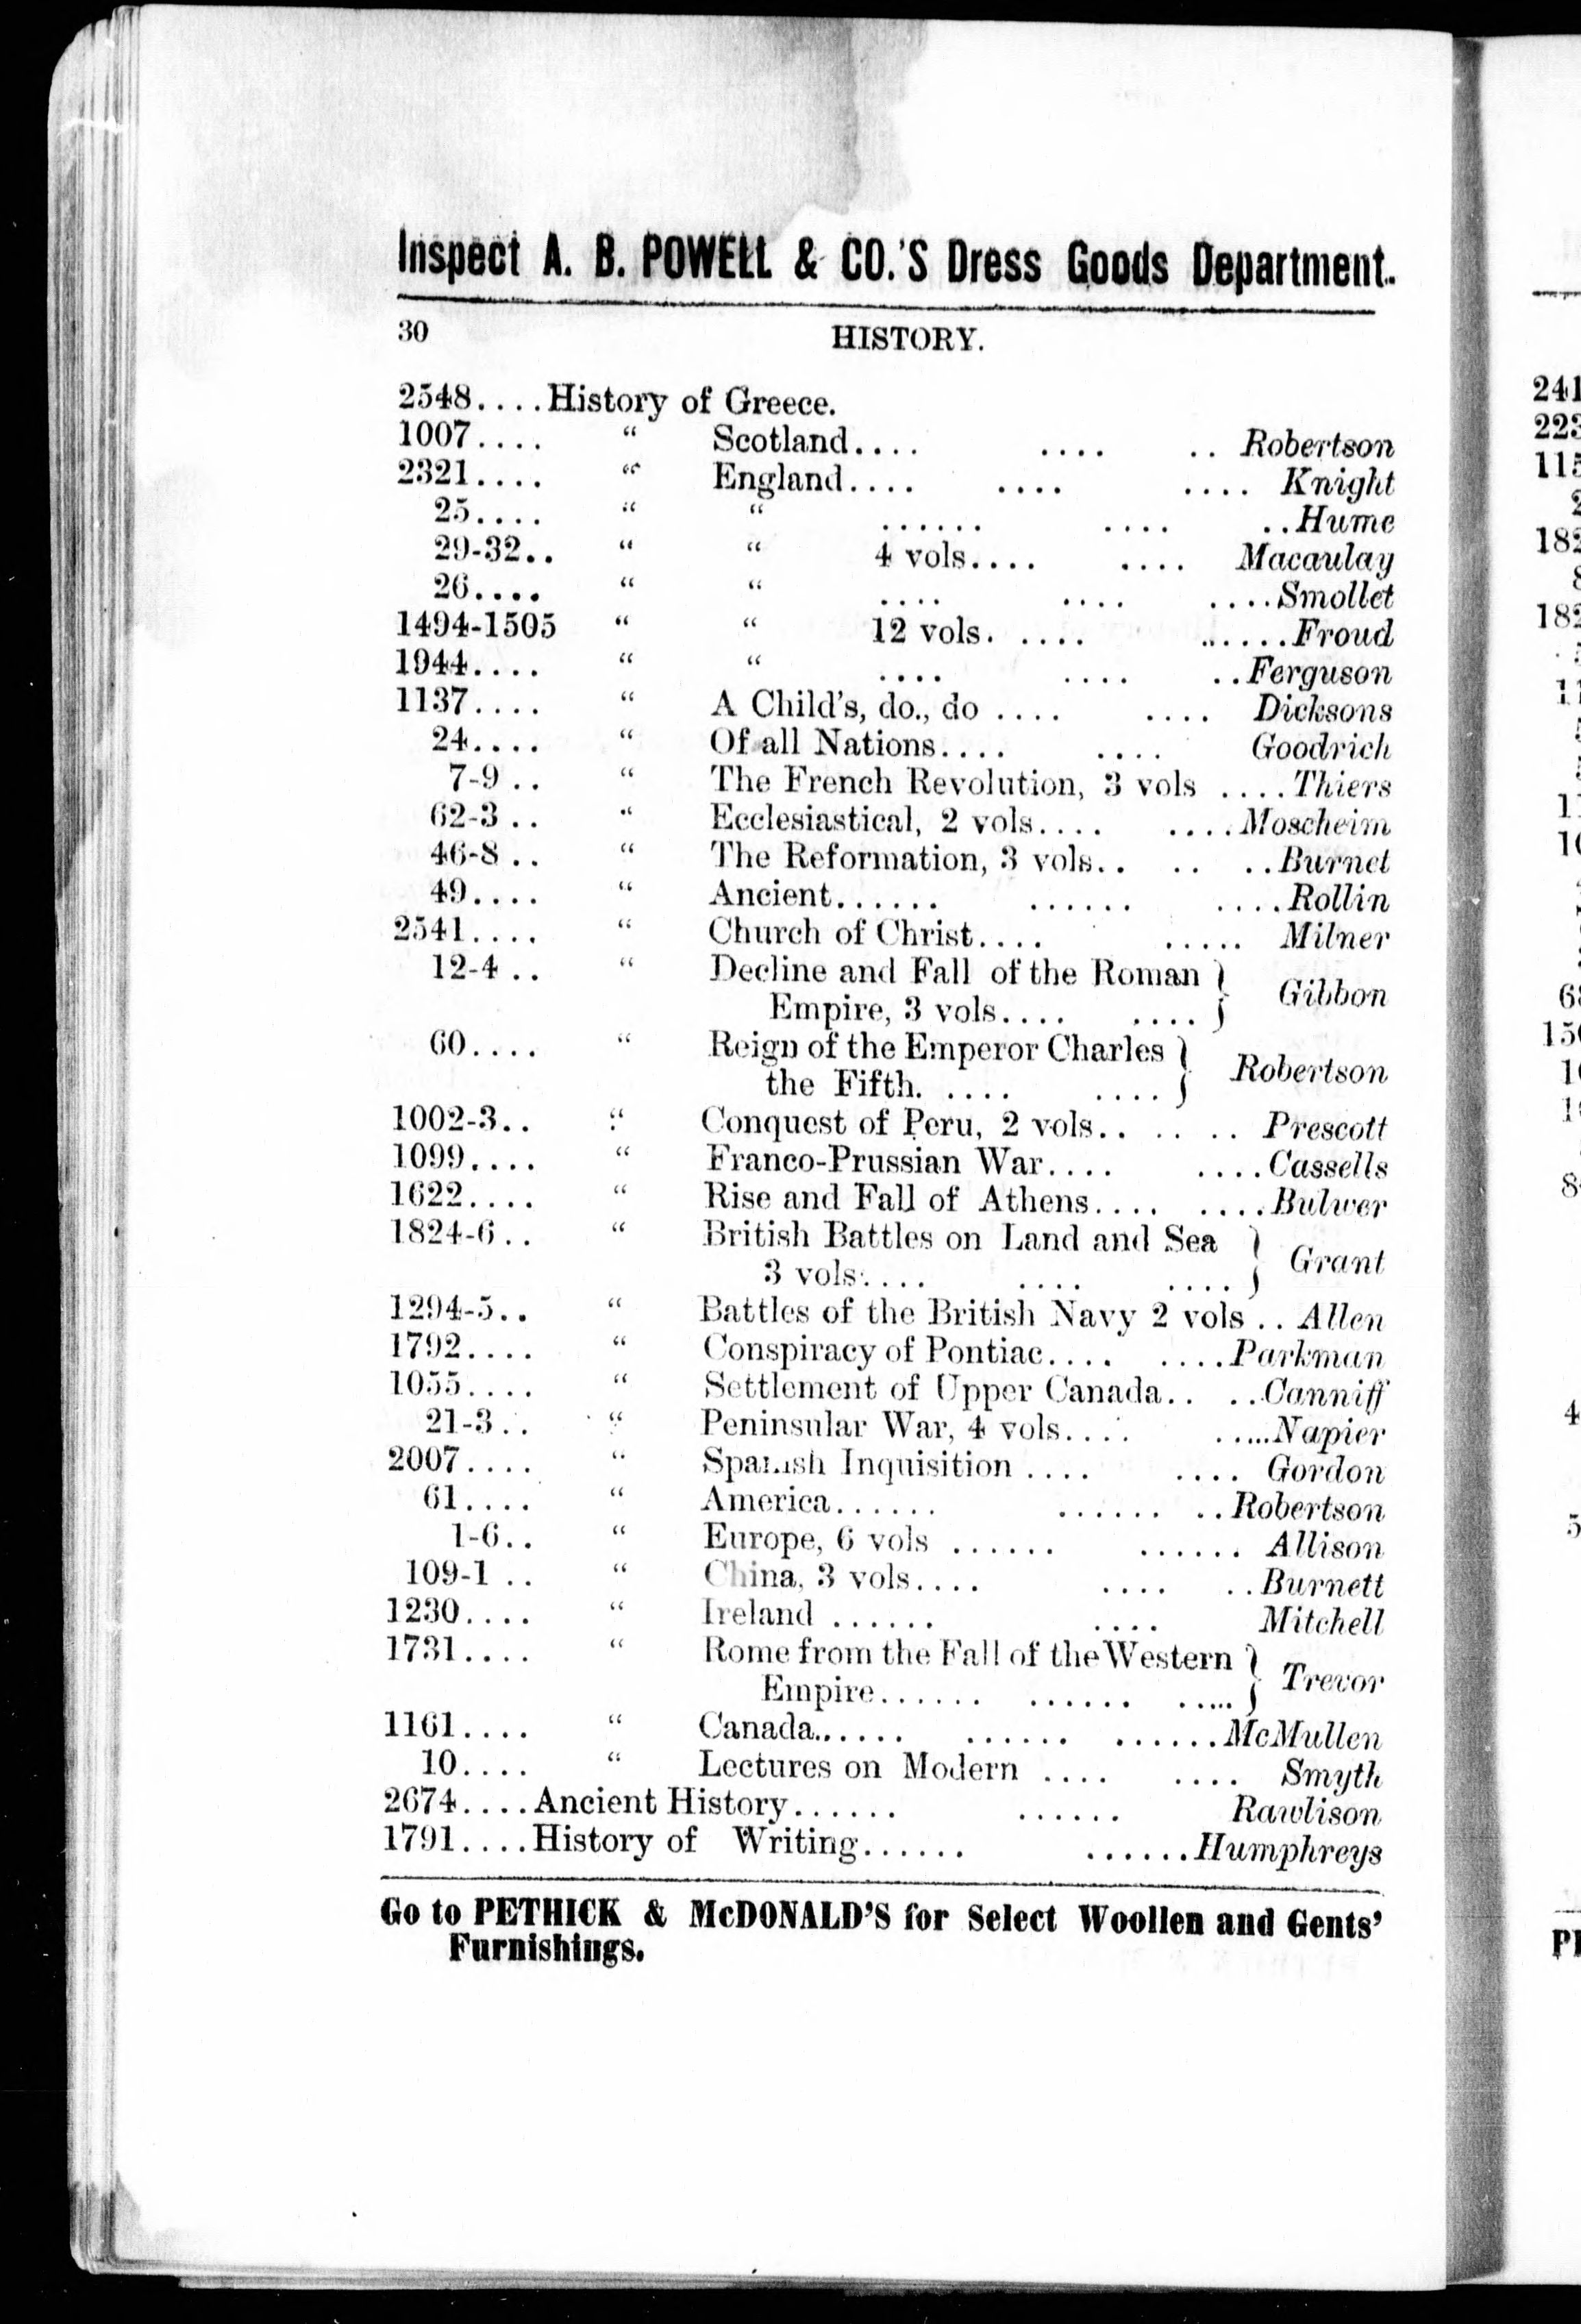 Inspect A. B. POWELL & CO.'S Dress Goods Department.
30 HISTORY.
2548....History of Greece.
1007.... “ Scotland.... .... .. Robertson
2321.... “ England.... .... .... Knight
25.... “ “ ...... .... ..Hume
29-32.. “ “ 4 vols.... .... Macaulay
26.... “ “ .... .... ....Smollet
1494-1505 “ “ 12 vols. .... ......Froud
1944.... “ “ .... .... ..Ferguson
1137.... “ A Child's, do., do .... .... Dicksons
24.... “ Of all Nations.... .... Goodrich
7-9 .. “ The French Revolution, 3 vols ....Thiers
62-3 .. “ Ecclesiastical, 2 vols.... ....Moscheim
46-8 .. “ The Reformation, 3 vols.. .. ..Burnet
49.... “ Ancient...... ...... ....Rollin
2541.... “ Church of Christ.... ..... Milner
12-4 .. “ Decline and Fall of the Roman }
Empire, 3 vols.... .... } Gibbon
60.... “ Reign of the Emperor Charles }
the Fifth. .... .... } Robertson
1002-3.. “ Conquest of Peru, 2 vols.. .. .. Prescott
1099.... “ Franco-Prussian War.... ....Cassells
1622.... “ Rise and Fall of Athens.... ....Bulwer
1824-6.. “ British Battles on Land and Sea }
3 vols.... .... .... } Grant
1294-5.. “ Battles of the British Navy 2 vols .. Allen
1792.... “ Conspiracy of Pontiac.... ....Parkman
1055.... “ Settlement of Upper Canada.. ..Canniff
21-3.. “ Peninsular War, 4 vols.... .....Napier
2007.... “ Spanish Inquisition .... .... Gordon
61.... “ America...... ...... ..Robertson
1-6.. “ Europe, 6 vols ...... ...... Allison
109-1 .. “ China, 3 vols.... .... ..Burnett
1230.... “ Ireland ...... .... Mitchell
1731.... “ Rome from the Fall of the Western }
Empire...... ...... ..... } Trevor
1161.... “ Canada...... ...... ......McMullen
10.... “ Lectures on Modern .... .... Smyth
2674....Ancient History...... ...... Rawlison
1791....History of Writing...... ......Humphreys
Go to PETHICK & McDONALD'S for Select Woollen and Gents'
Furnishings.